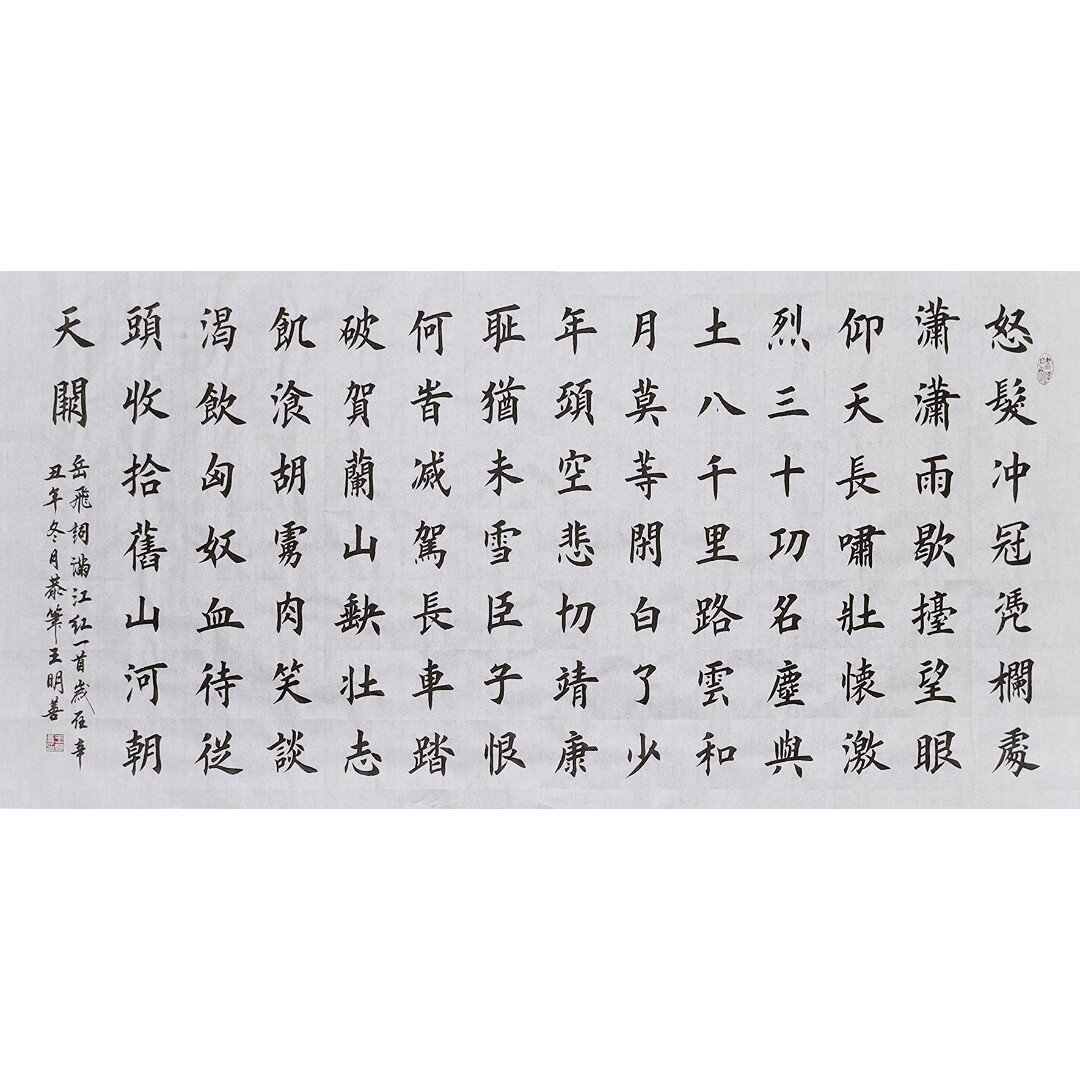 怒髮冲冠凭欄處
瀟瀟雨歇擡望眼
仰天長嘯壯懷激
烈三十功名塵與
土八千里路雲和
月莫等閑白了少
年頭空悲切靖康
耻猶未雪臣子恨
何旹滅駕長車踏
破賀蘭山缺壯志
飢湌胡虜肉笑談
渴飲匈奴血待從
頭收拾舊山河朝
天闕
岳飛詞滿江紅一首歲在辛
丑年冬月恭筆王明善